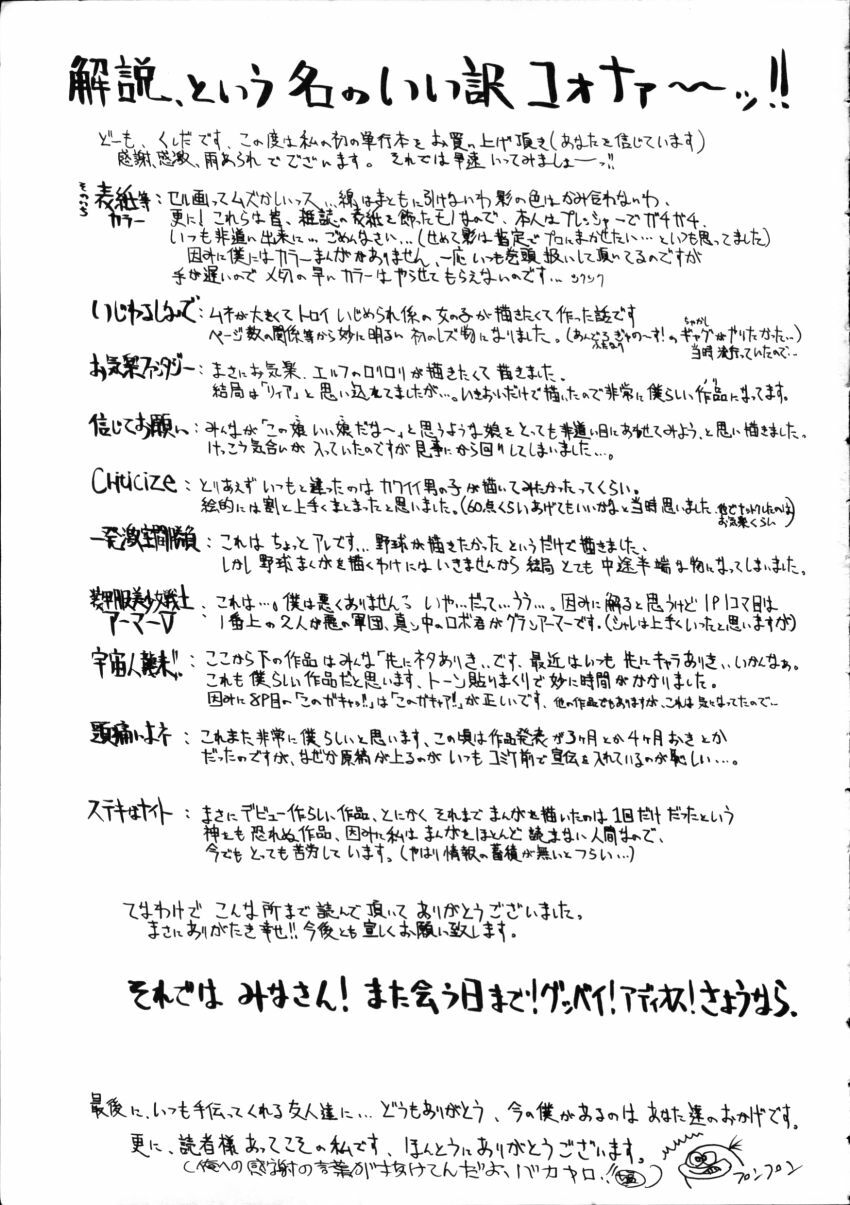 解説、という名のいい訳コォナァ〜〜ッ!!
どーも、くしだです、この度は私の初の単行本をお買い上げ頂き(あなたを信じています)
感謝、感激、雨あられでございます。それでは早速いってみましょーっ!!
そのいち
表紙等カラー：セル画ってムズかしいっス…線はまともに引けないわ影の色はかみ合わないわ、
更に!これらは皆、雑誌の表紙を飾ったモノなので、本人はプレッシャーでガチガチ、
いつも非道い出来に…ごめんなさい…(せめて影は指定でプロにまかせたい…といつも思ってました)
因みに僕にはカラーまんががありません、一応いつも巻頭扱いして頂いてるのですが
手が遅いので〆切の早いカラーはやらせてもらえないのです…シクシク
いじわるしないで：ムネが大きくてトロイいじめられ係の女の子が描きたくて作った話です
ページ数の関係等から妙に明るい初のレズ物になりました。(あんどろぎゃのーす!のギャグがやりたかった…)
当時流行っていたので…
お気楽ファンタジー：まさにお気楽、エルフのロリロリが描きたくて描きました、
結局は「リィア」と思い込れてましたが…。いきおいだけで描いたので非常に僕らしい作品になってます。
信じてお願い：みんなが「この娘いい娘だな〜」と思うような娘をとっても非道い目にあわせてみよう、と思い描きました。
けっこう気合いが入っていたのですが見事にから回りしてしまいました…。
Criticize：とりあえずいつもと違ったのはカワイイ男の子が描いてみたかったってくらい。
絵的には割と上手くまとまったと思いました。(60点くらいあげてもいいかなと当時思いました、
お気楽くらい)
：これはちょっとアレです…野球が描きたかったというだけで描きました、
しかし野球まんがを描くわけにはいきませんから結局とても中途半端な物になってしまいました。
装甲服美少女戦士アーマーV：これは…。僕は悪くありませんよいや…だって…うう…。因みに解ると思うけど1P1コマ目は
1番上の2人が悪の軍団、真ン中のロボ君がグランアーマーです。(シャレは上手くいったと思いますが)
宇宙人襲来!!：ここから下の作品はみんな「先にネタありき」です、最近はいつも先にキャラありき、いかんなぁ。
これも僕らしい作品だと思います、トーン貼りまくりで妙に時間がかかりました。
因みに8P目の「このガキャッ!!」は「このガキャァ!」が正しいです、他の作品でもありますが、これは気になってたので…
頭痛によネ：これまた非常に僕らしいと思います、この頃は作品発表が3ヶ月とか4ヶ月おきとか
だったのですが、なぜか原稿が上るのがいつもコミケ前で宣伝を入れているのが恥しい…。
ステキなナイト：まさにデビュー作らしい作品、とにかくそれまでまんがを描いたのは1回だけだったという
神をも恐れぬ作品、因みに私はまんがをほとんど読まない人間なので、
今でもとっても苦労しています。(やはり情報の蓄積が無いとつらい…)
てなわけでこんな所まで読んで頂いてありがとうございました。
まさにありがたき幸せ!!今後とも宜しくお願い致します。
それではみなさん!また会う日まで!グッバイ!アディオス!さようなら.
最後に、いつも手伝ってくれる友人達に…どうもありがとう、今の僕があるのはあなた達のおかげです。
更に、読者様あってこその私です、ほんとうにありがとうございます。
(俺への感謝の言葉が抜けてんだよ、バカヤロ!!)
プンプン